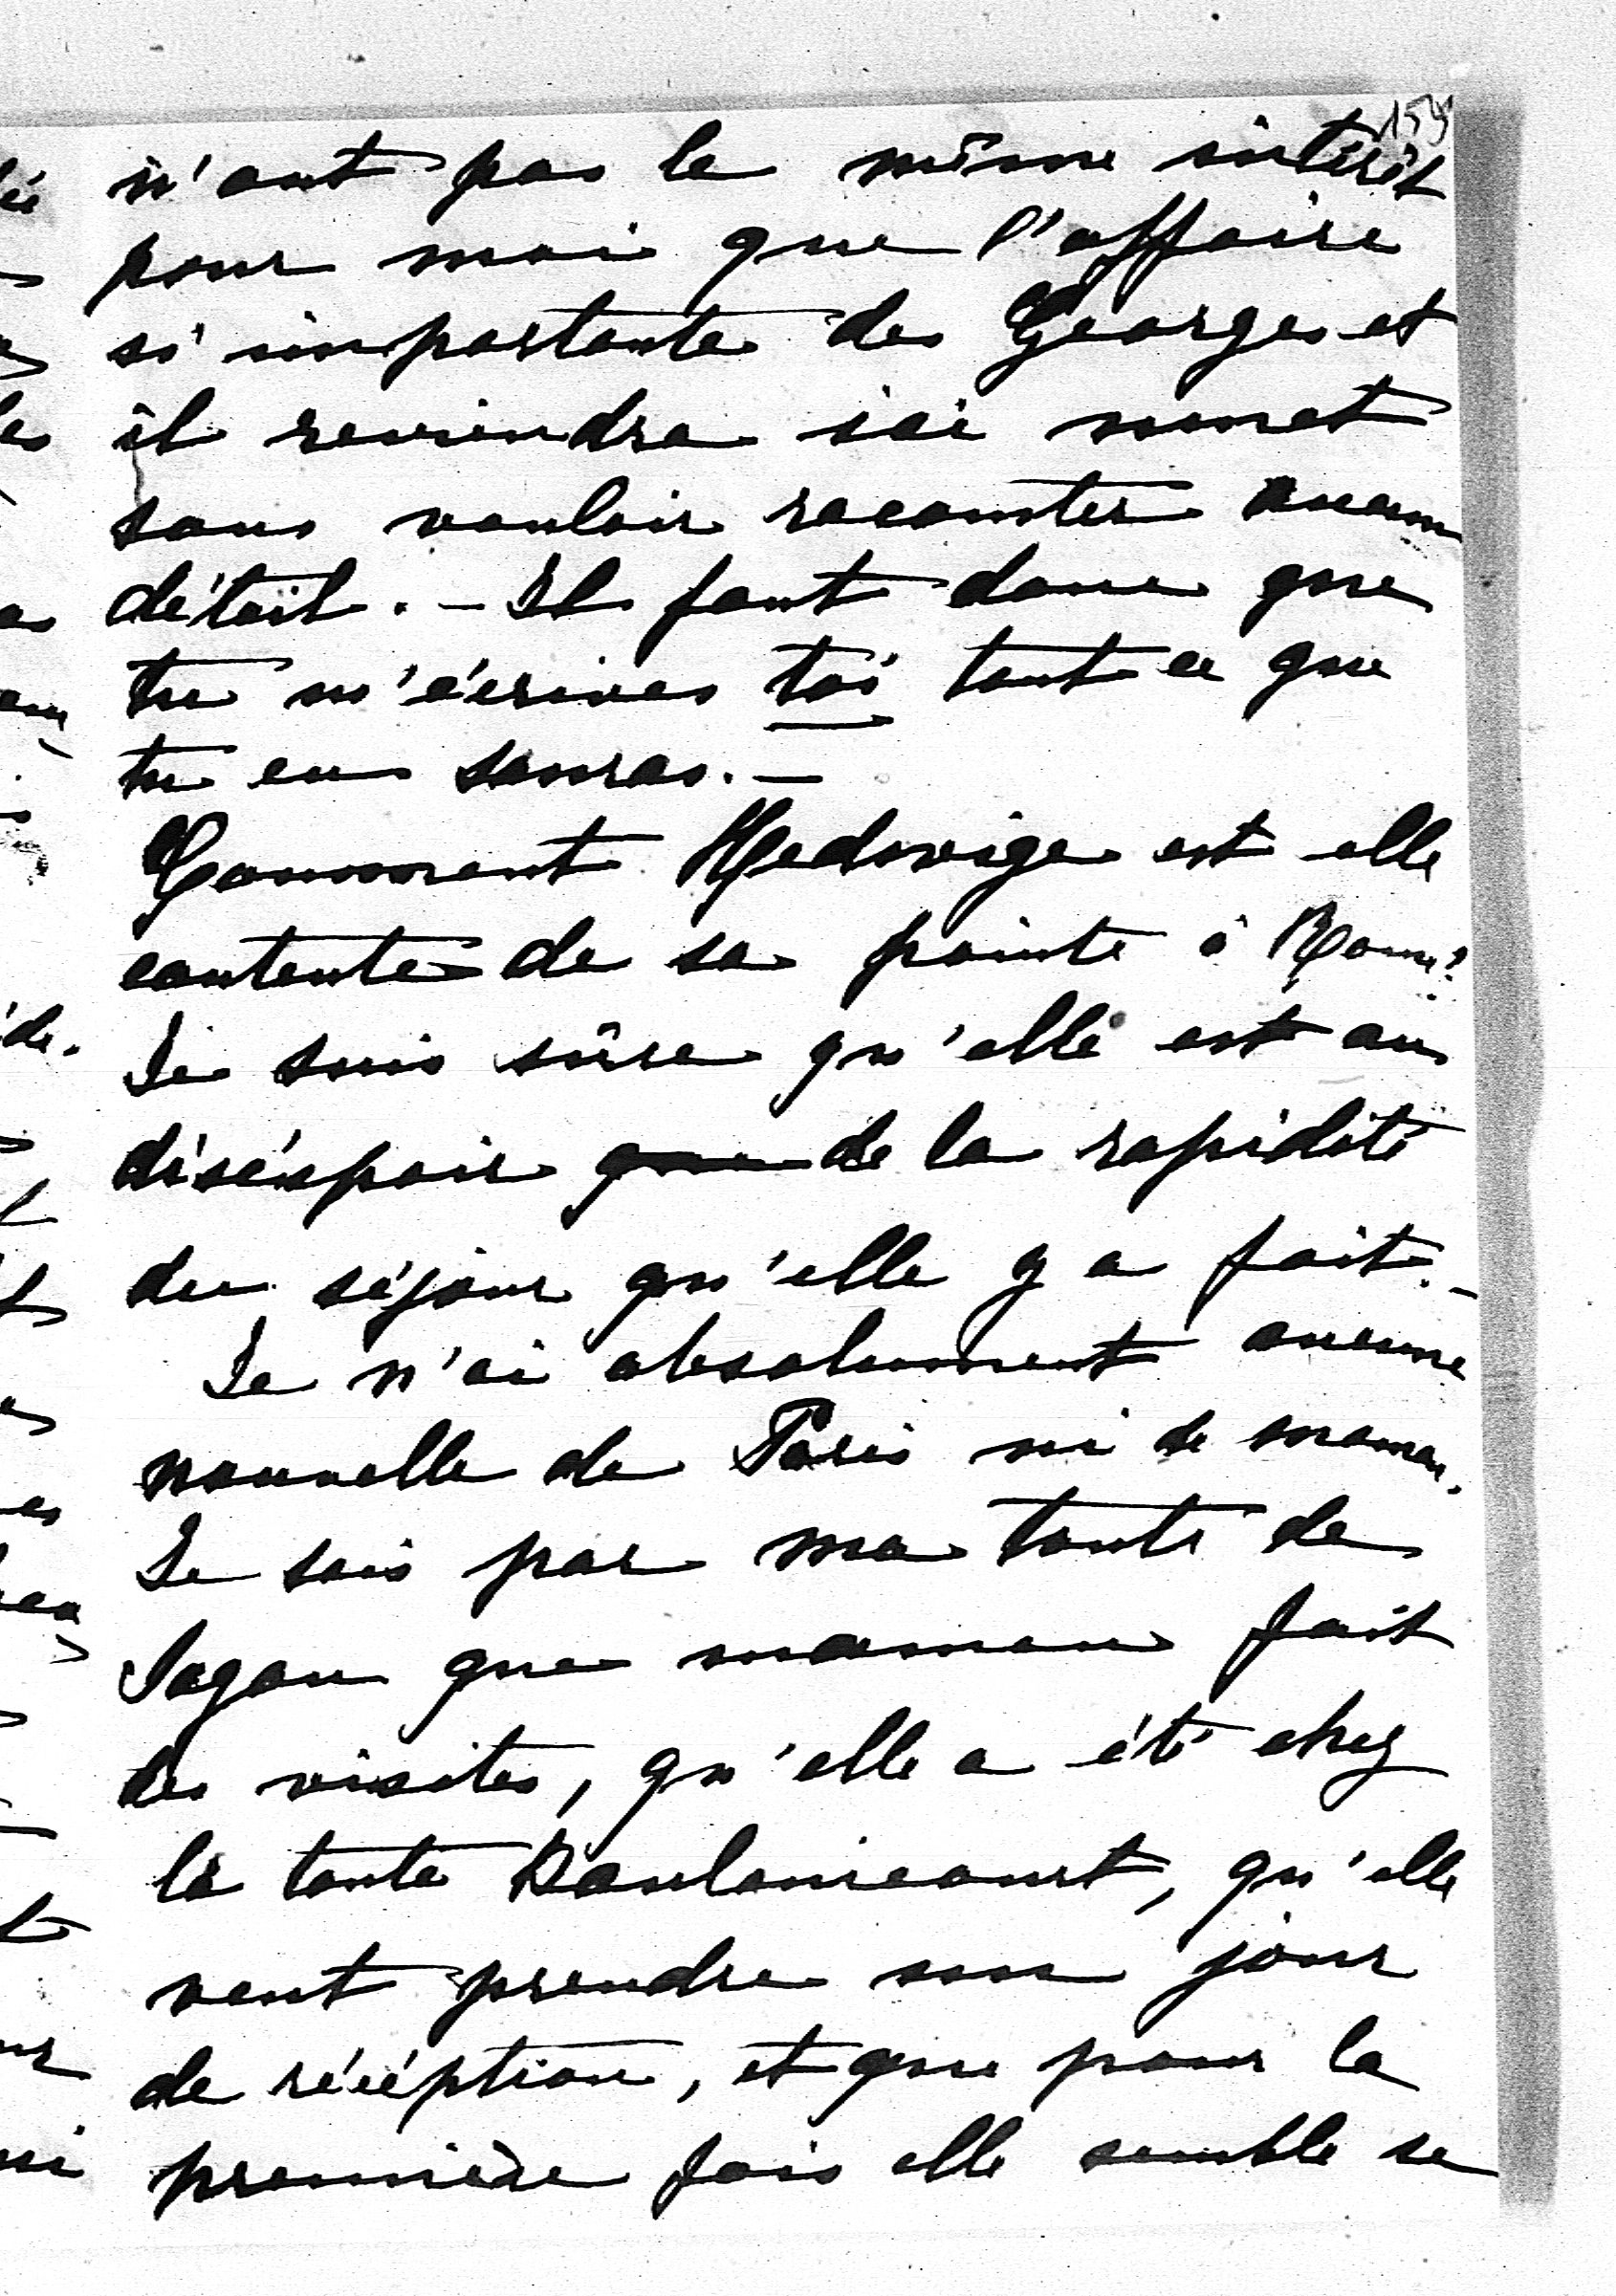 n'ont pas le même intérêt
pour moi que l'affaire
si importante de Georges et
il reviendra ici muet
sans vouloir raconter aucun
détail. — Il faut donc que
tu m'écrives toi tout ce que
tu en sauras. —
Comment Hedwige est elle
contente de sa pointe à Rome?
Je suis sûre qu'elle est au
désespoir que de la rapidité
du séjour qu'elle y a fait. —
Je n'ai absolument aucune
nouvelle de Paris ni de maman.
Je sais par ma tante de
Sagan que maman fait
des visites, qu'elle a été chez
la tante Raulaincourt, qu'elle
veut prendre son jour
de réception, et que pour la
première fois elle semble se